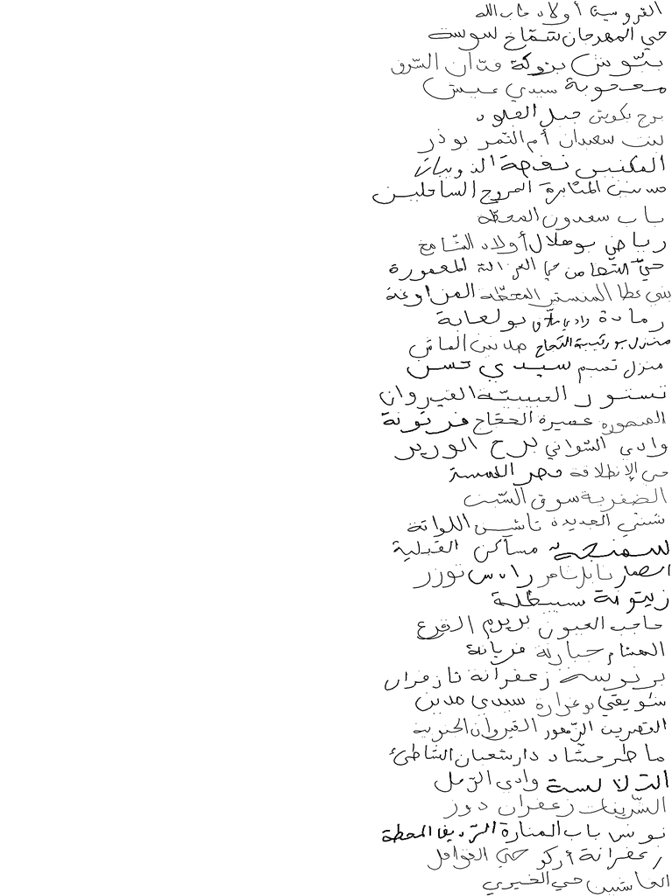 الفردوسية أولاد جاب الله
حي المهرجان شمّاخ سوسة
بتّوش بزوكة فتان الشرق
معجوبة سيدي عيش
برج بكوش جبل الجلود
بنت سعيدان أم الثمر بوذر
المكنين نفجة الذويبات
مدنين المثابرة المروج الساحلين
باب سعدون المحطة
رياض بوهلال أولاد الشامخ
حيّ التضامن حي الغزالة المعمورة
بني عطا المنستير المحطة المزاوغة
رمادة وادي بولعابة
منزل بورقيبة النجاح مدنين الماش
منزل تميم سيدي حسن
تستور العبيبة القيروان
المنصورة عميرة الحجاج فرتونة
وادي الشواني برج الوزير
حي الإنطلاقة قصر اللمسة
الضفرية سوق السّبت
شنني الجديدة تاشين اللواتة
سمنجة مساكن القبلية
انصار تابلنامر راس توزر
زيتونة سبيطلة
حاجب العيون بريرم القرع
الهشام جبارنة فريانة
برنوسة زعفرانة تازغران
شويقي بوغرارة سيدي مدين
القصرين الزهور القيروان الجنوبية
ماطر حشاد دار شعبان الشاطئ
التلالسة وادي الرمل
الشرينات زعفران دوز
نوش باب المنارة الرديف المحطة
زعفرانة أركو حي القوافل
الحاشين حي الخيري